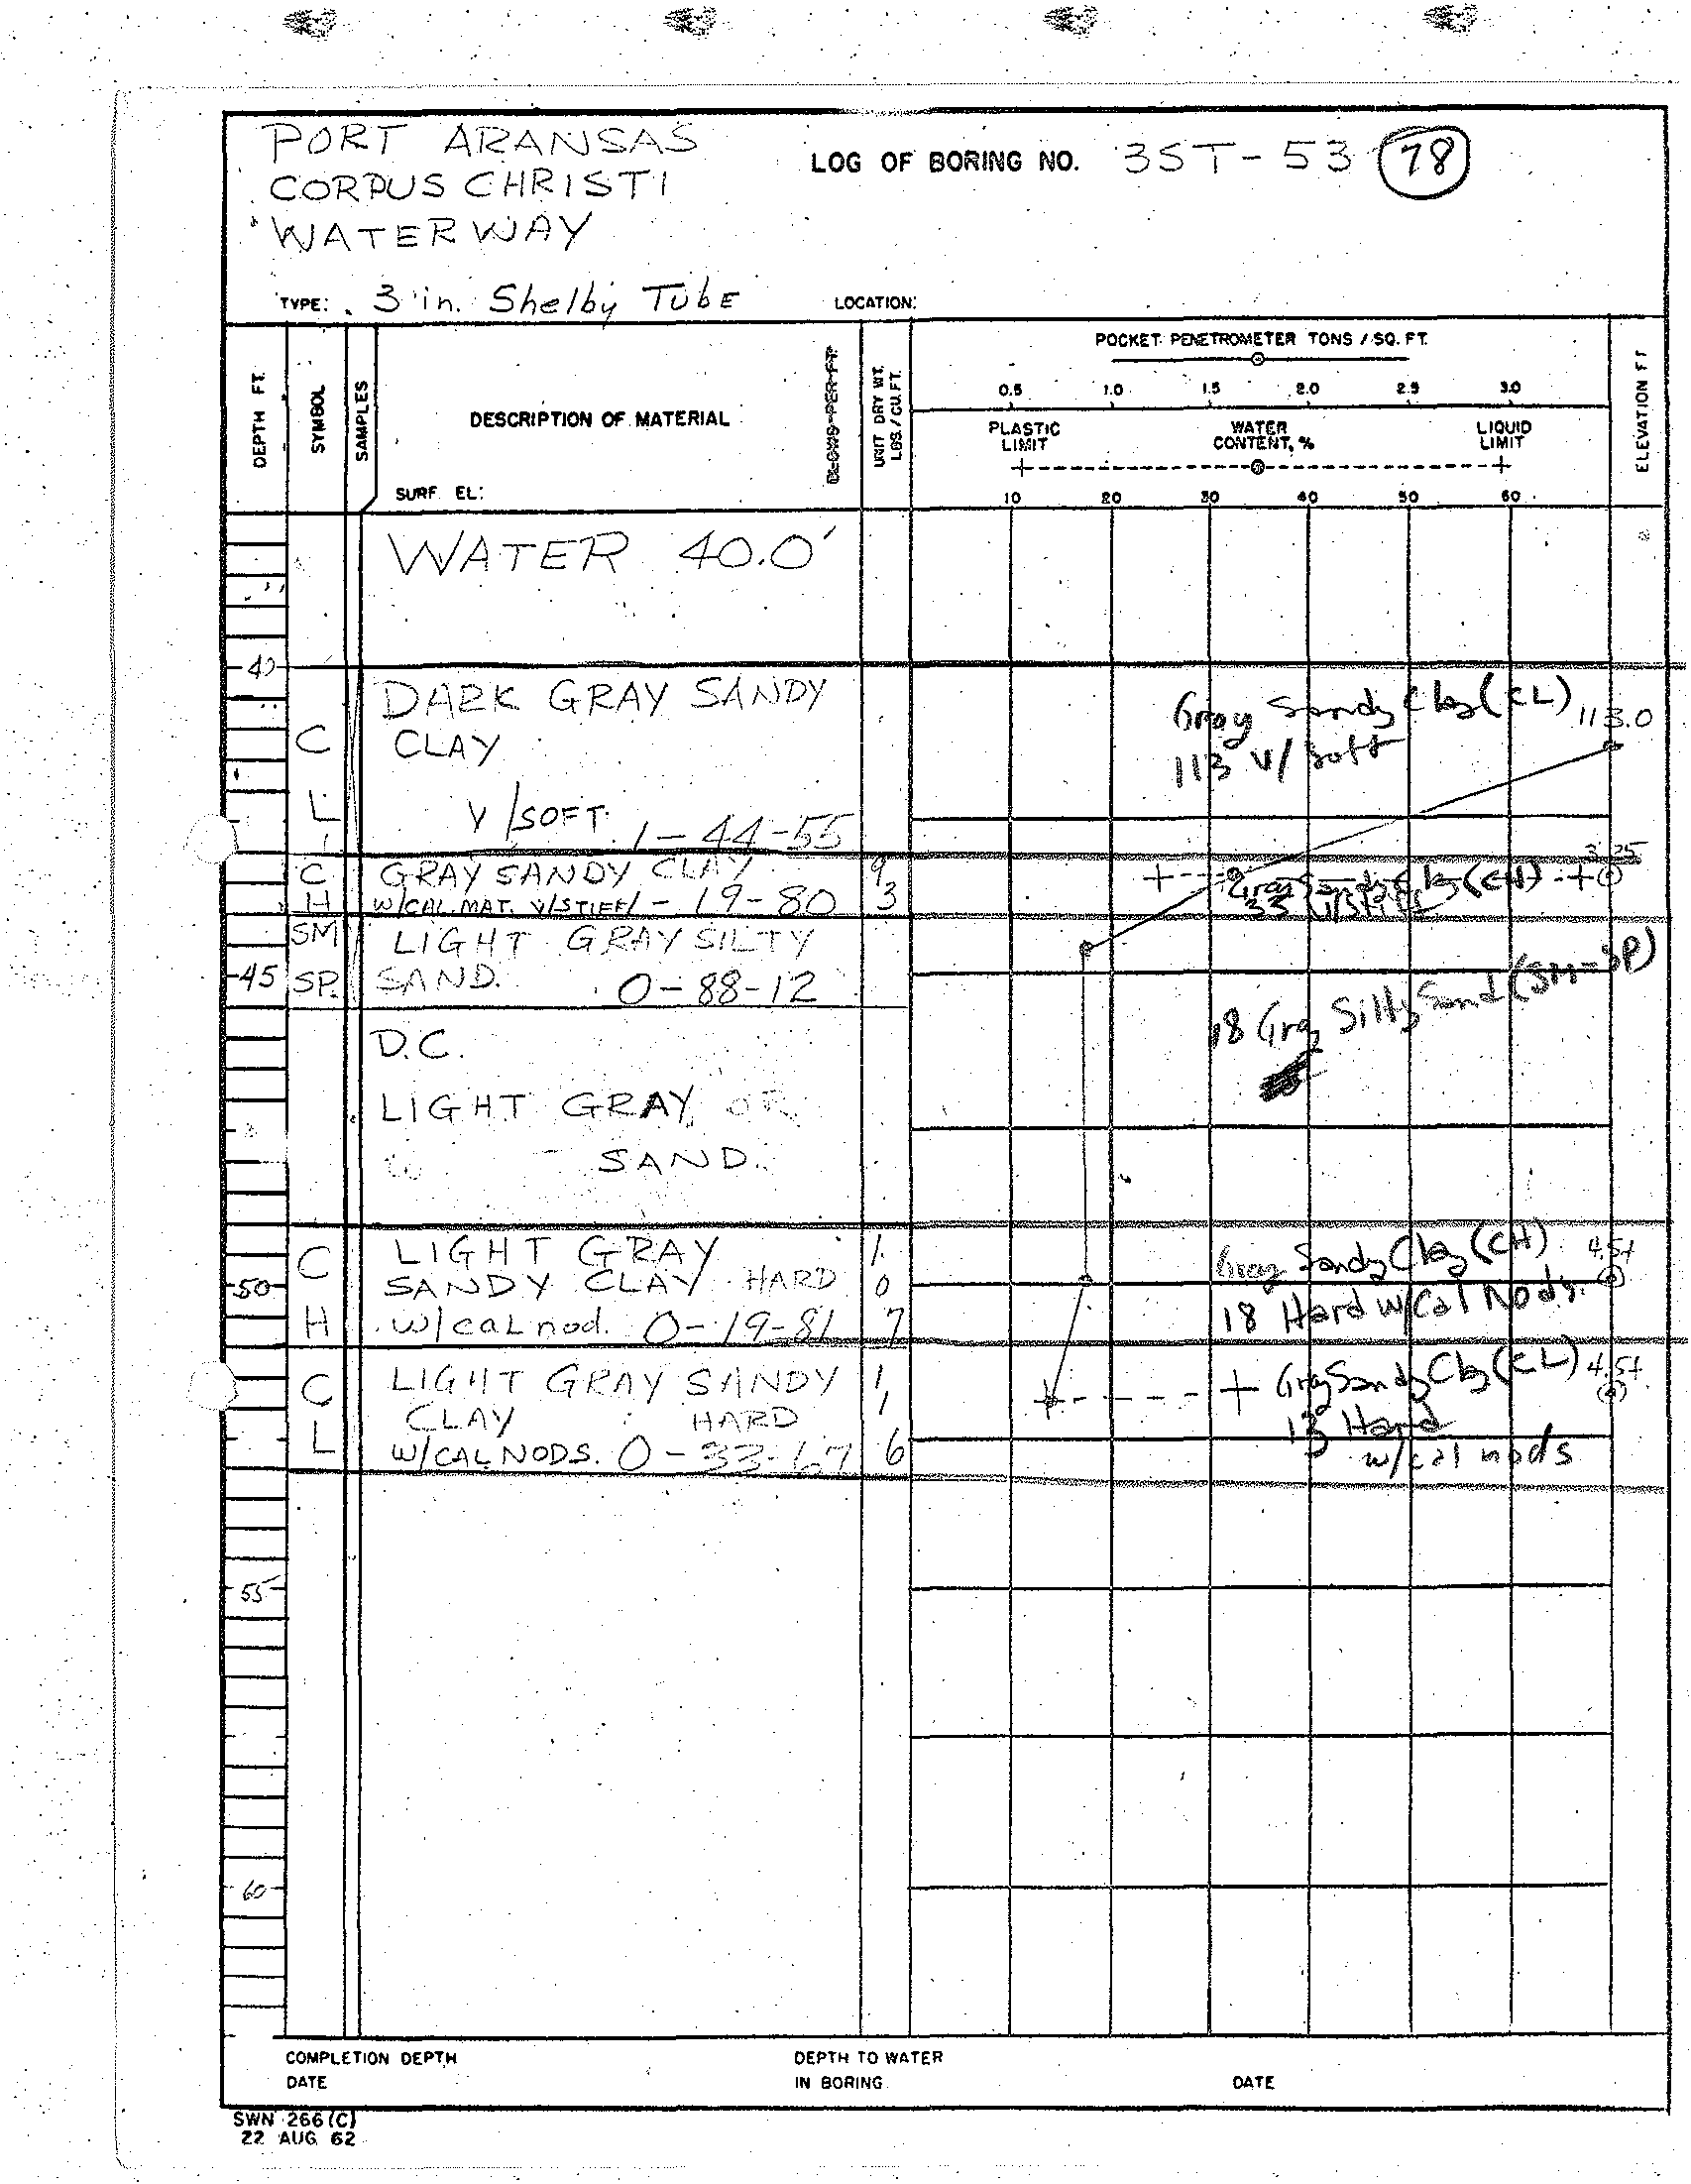 PORT ARANSAS
CORPUS CHRISTI
WATERWAY
LOG OF BORING NO. 3ST-53 78
TYPE: 3 in. Shelby Tube
LOCATION:
DEPTH FT.
SYMBOL
SAMPLES
DESCRIPTION OF MATERIAL
SURF. EL:
BLOWS PER FT.
UNIT DRY WT. LBS./CU. FT.
POCKET PENETROMETER TONS / SQ. FT.
0.5 1.0 1.5 2.0 2.5 3.0
PLASTIC LIMIT
WATER CONTENT, %
LIQUID LIMIT
10 20 30 40 50 60
ELEVATION FT
WATER 40.0'
40
DARK GRAY SANDY
C CLAY
L V/SOFT 1-44-55
Gray Sandy Clay (CL) 113.0
113 V/Soft
C GRAY SANDY CLAY 9
H W/CAL. MAT. V/STIFF 1-19-80 3
Gray Sandy Clay (CH) 3.25
33 V/Stiff
SM LIGHT GRAY SILTY
45 SP SAND. 0-88-12
18 Gray Silty Sand (SM-SP)
D.C.
LIGHT GRAY
SAND.
C LIGHT GRAY 1
50 SANDY CLAY HARD 0
H w/cal nod. 0-19-81 7
Gray Sandy Clay (CH) 4.5+
18 Hard w/Cal Nods.
C LIGHT GRAY SANDY 1
CLAY HARD 1
L W/CAL NODS. 0-33-67 6
Gray Sandy Clay (CL) 4.5+
13 Hard
w/cal nods
55
60
COMPLETION DEPTH
DATE
DEPTH TO WATER
IN BORING
DATE
SWN 266 (C)
22 AUG 62